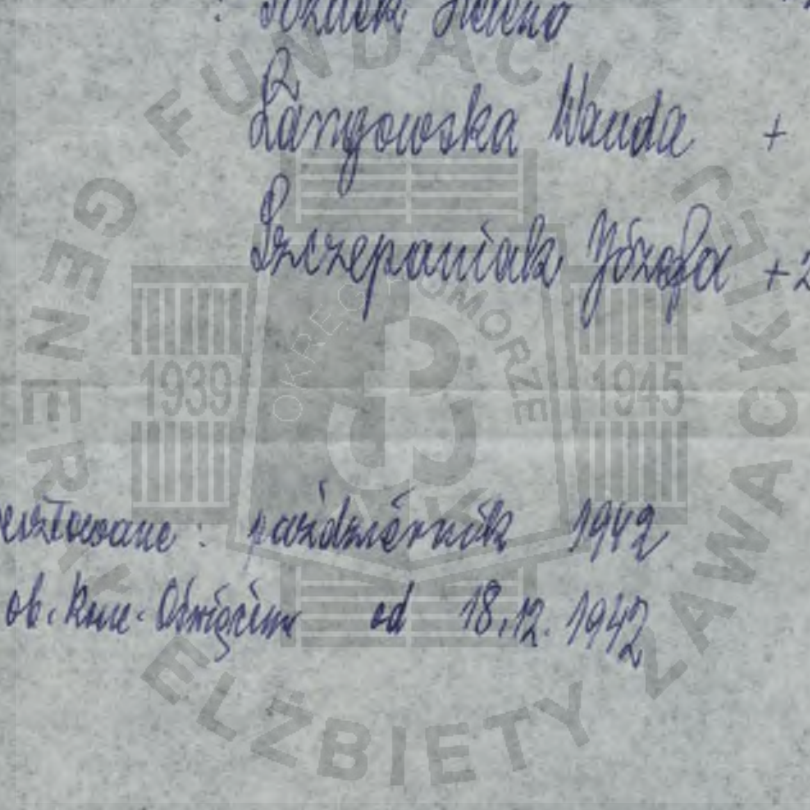 Helena
Langowska Wanda +
Szczepaniak Józefa + 2
październik 1942
ob. konc. Oświęcim od 18.12.1942
FUNDACJA
GENERAŁ ELŻBIETY ZAWACKIEJ
OKRĘG POMORZE AK
1939 1945